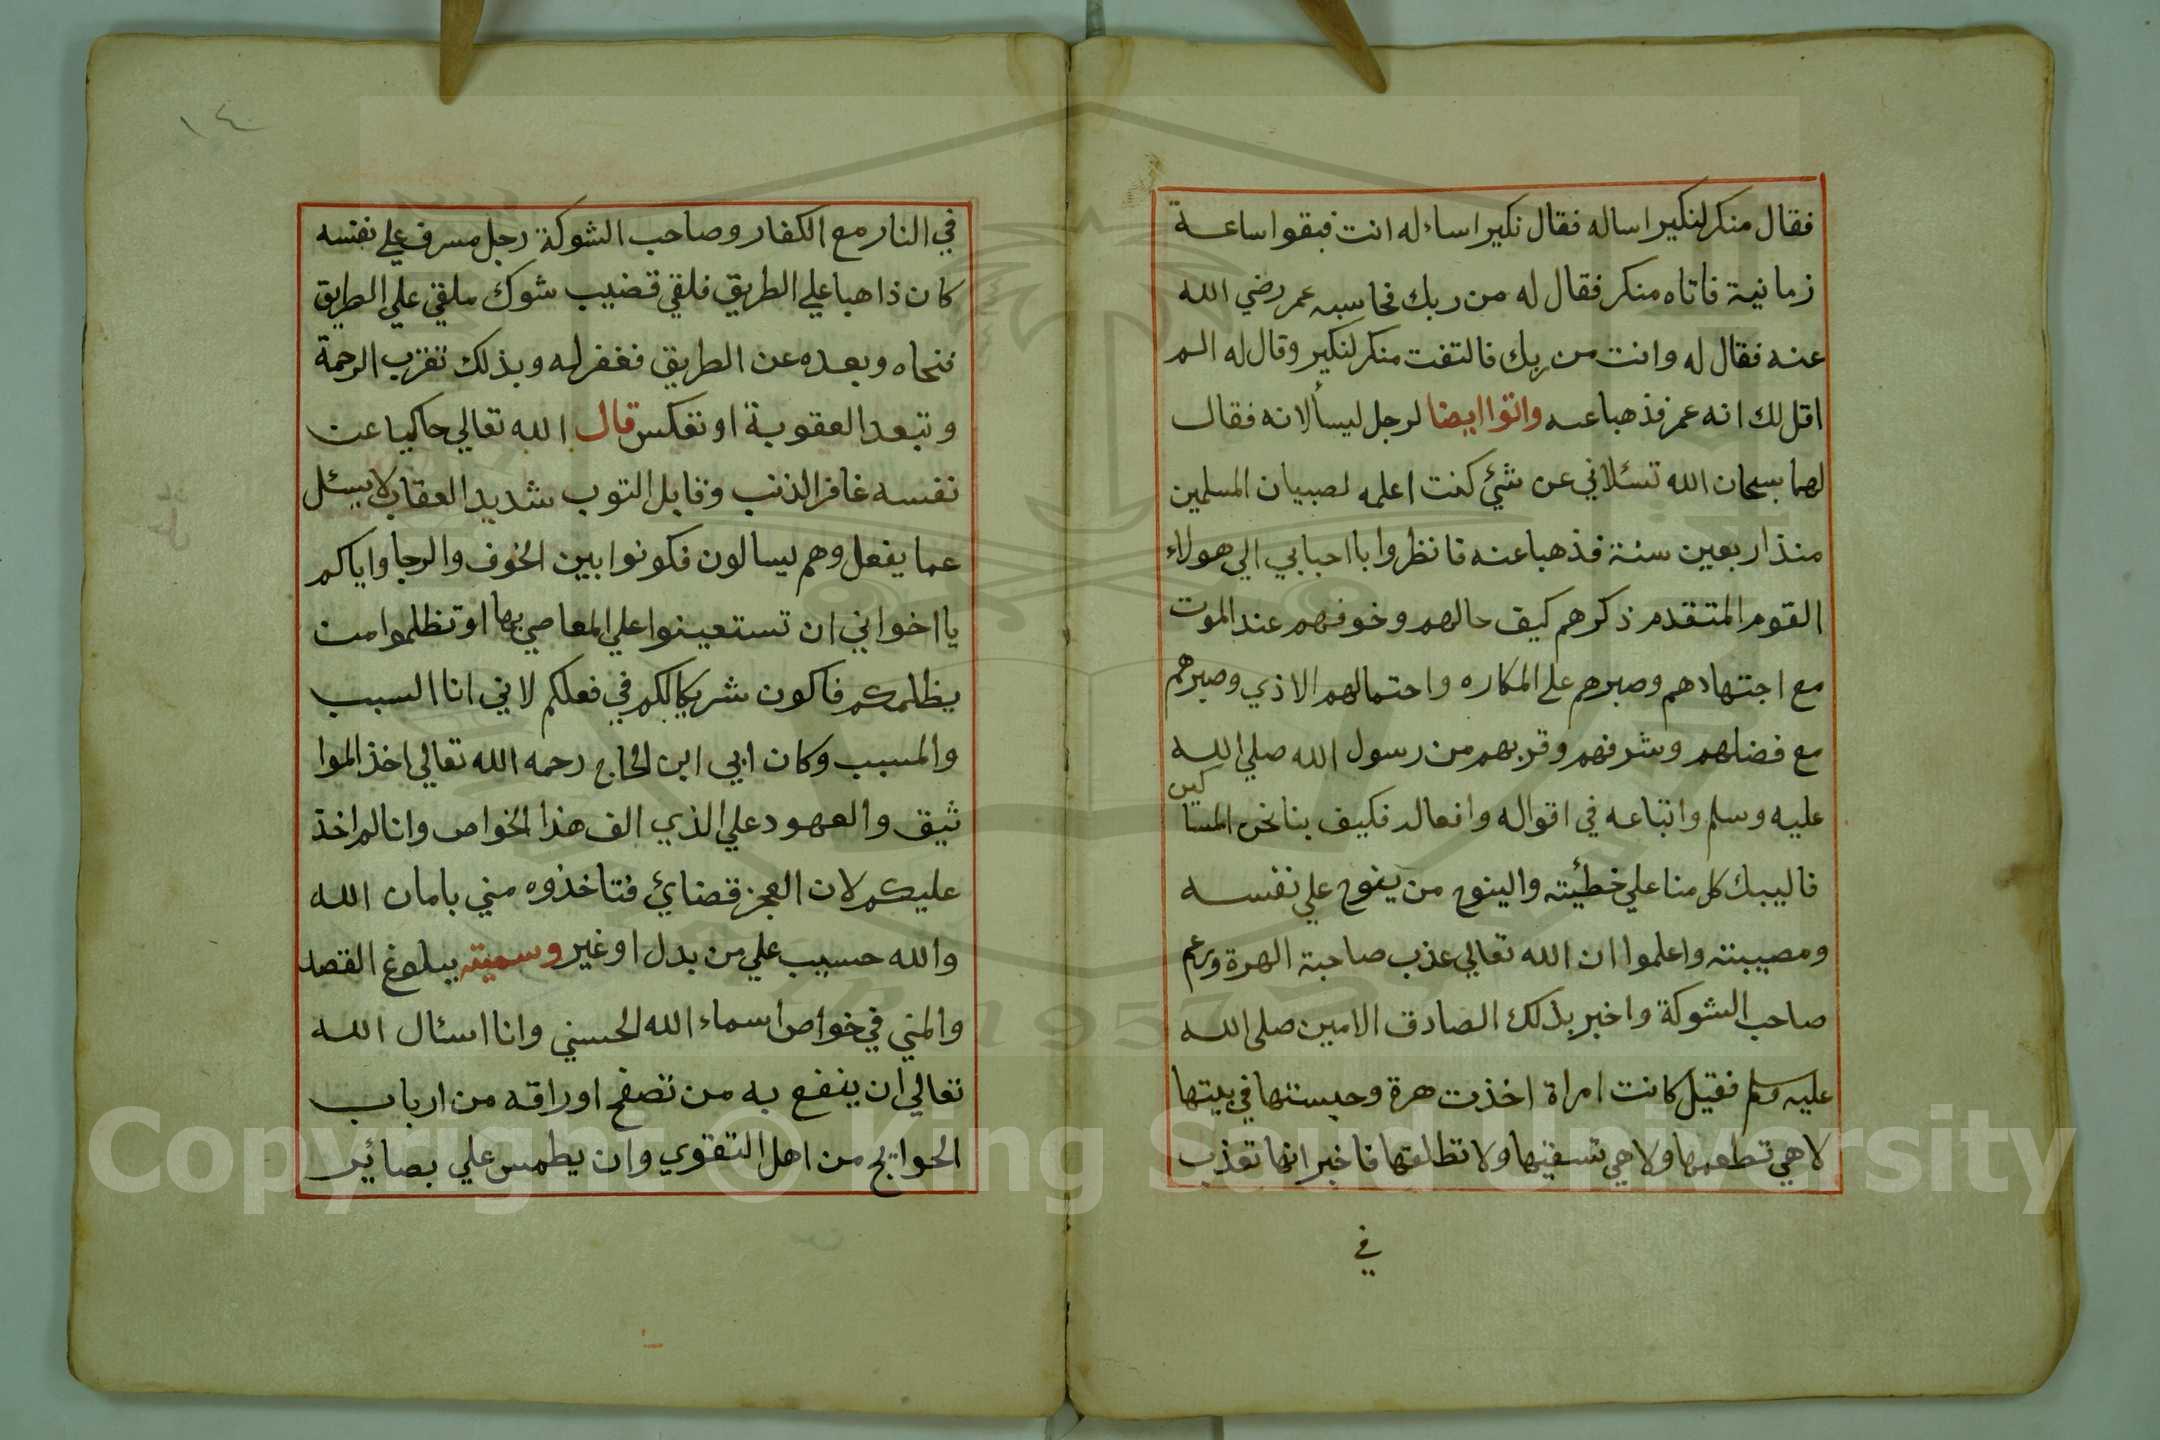 فقال منكر لنكير اساله فقال نكير اساء له انت فبقوا ساعة
زمانية فاتاه منكر فقال له من ربك فحاسبه عمر رضي الله
عنه فقال له وانت من ربك فالتفت منكر لنكير وقال له الم
اقل لك انه عمر فذهبا عنه واتوا ايضا لرجل ليسألانه فقال
لهما سبحان الله تسئلاني عن شئ كنت اعلمه لصبيان المسلمين
منذ اربعين سنة فذهبا عنه فانظروا يا احبابي الي هولاء
القوم المتقدم ذكرهم كيف حالهم وخوفهم عند الموت
مع اجتهادهم وصبرهم على المكاره واحتمالهم الاذي وصبرهم
مع فضلهم وشرفهم وقربهم من رسول الله صلي الله
عليه وسلم واتباعه في اقواله وافعاله فكيف بنا نحن المساكين
فاليبك كل منا علي خطئيته والينوح من ينوح علي نفسه
ومصيبته واعلموا ان الله تعالي عذب صاحبة الهرة ورحم
صاحب الشوكة واخبر بذلك الصادق الامين صلى الله
عليه وسلم فقيل كانت امراة اخذت هرة وحبستها في بيتها
لا هي تطعمها ولا هي تسقيها ولا تطلقها فاخبر انها تعذب
في
١٤
في النار مع الكفار وصاحب الشوكة رجل مسرف علي نفسه
كان ذاهبا علي الطريق فلقي قضيب شوك ملقي علي الطريق
فنحاه وبعده عن الطريق فغفر له وبذلك تقرب الرحمة
وتبعد العقوبة او تعكس قال الله تعالي حاكيا عن
نفسه غافر الذنب وقابل التوب شديد العقاب لا يسئل
عما يفعل وهم يسالون فكونوا بين الخوف والرجا واياكم
يا اخواني ان تستعينوا علي المعاصي بها او تظلموا من
يظلمكم فاكون شريكا لكم في فعلكم لاني انا السبب
والمسبب وكان ابي ابن الحاج رحمه الله تعالي اخذ الموا
ثيق والعهود علي الذي الف هذا الخواص وانا لم اخذ
عليكم لان العجز قضائ فتاخذوه مني بامان الله
والله حسيب علي من بدل او غير وسميته ببلوغ القصد
والمني في خواص اسماء الله الحسني وانا اسئال الله
تعالي ان ينفع به من تصفح اوراقه من ارباب
الحوايج من اهل التقوي وان يطمس علي بصائر
Copyright © King Saud University
1957